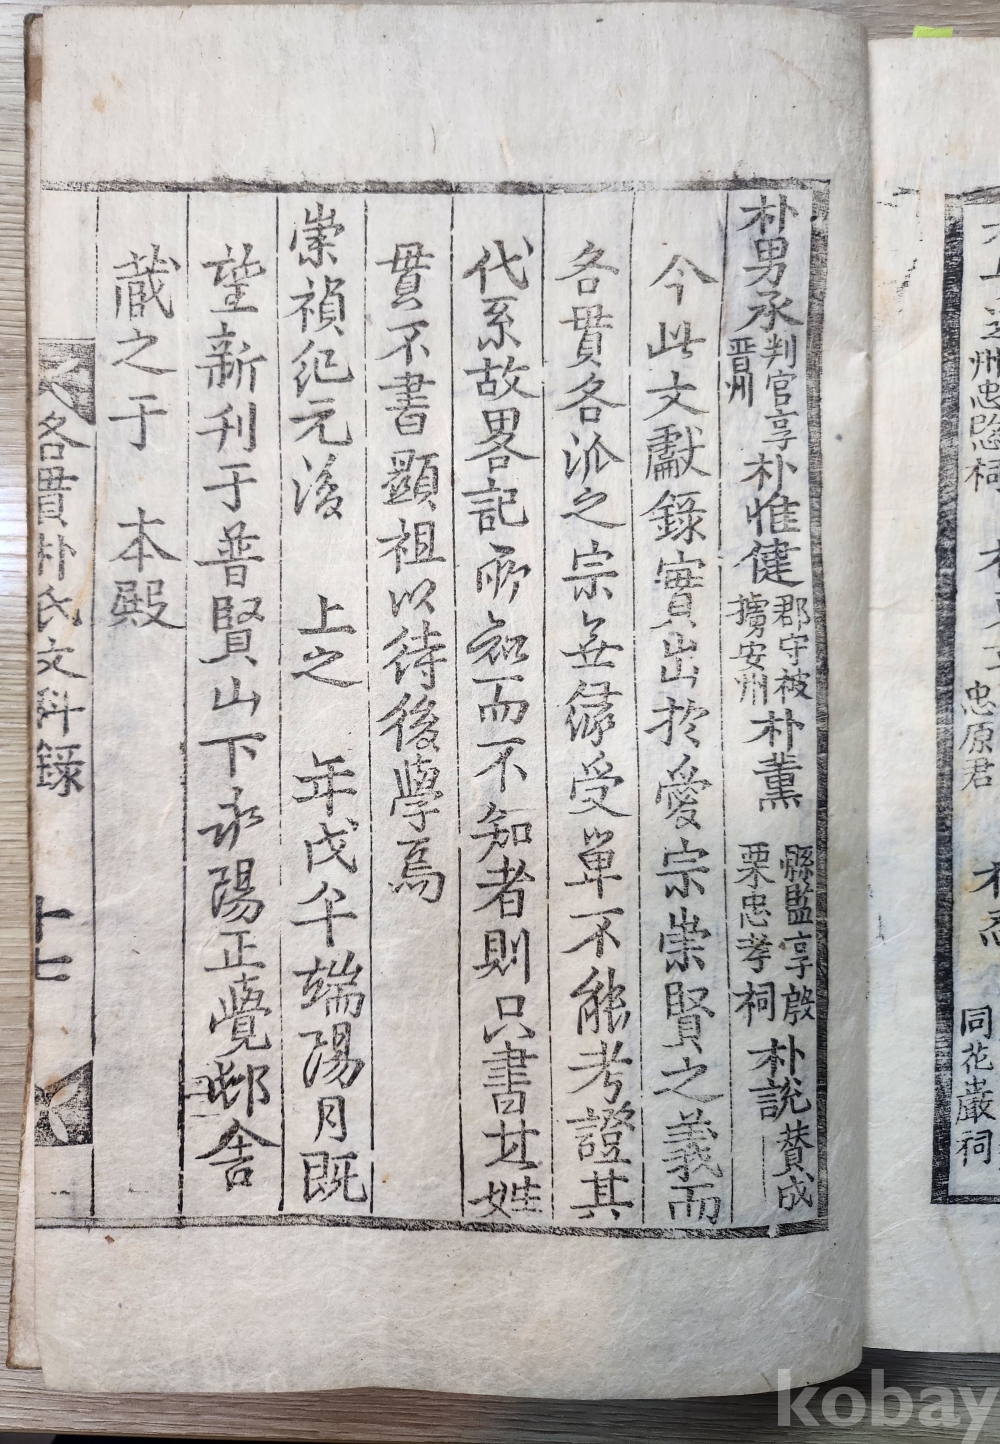 朴男承 判官享晋州 朴惟健 郡守被擄安州 朴薰 縣監享殷栗忠孝祠 朴說 賛成
今此文獻錄實出於愛宗崇賢之義而
各貫各派之宗無緣受單不能考證其
代系故畧記所知而不知者則只書其姓
貫不書顯祖以待後學焉
崇禎紀元後 上之 年戊午端陽月既
望新刊于普賢山下永陽正覺邨舍
藏之于 本殿
各貫朴氏文科錄 十七
州忠隱祠
忠原君
同花巖祠
kobay